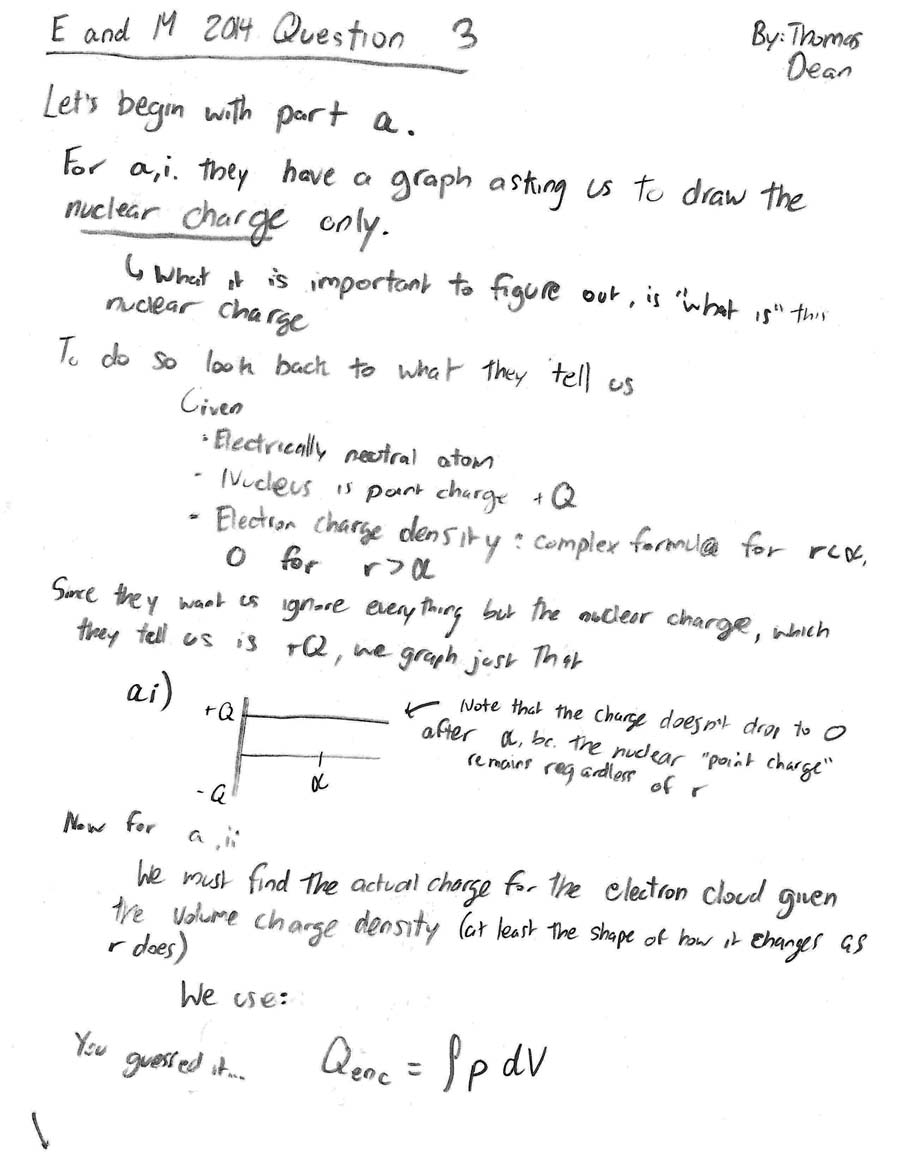 E and M 2014 Question 3
By: Thomas
Dean
Let's begin with part a.
For a,i. they have a graph asking us to draw the
nuclear charge only.
↳ What it is important to figure out, is "what is" this
nuclear charge
To do so look back to what they tell us
Given
· Electrically neutral atom
- Nucleus is point charge +Q
- Electron charge density : complex formula for r<α,
0 for r>α
Since they want us ignore everything but the nuclear charge, which
they tell us is +Q, we graph just that
ai)
+Q
-Q
α
← Note that the charge doesn't drop to 0
after α, bc. the nuclear "point charge"
remains regardless of r
Now for a,ii
We must find the actual charge for the electron cloud given
the volume charge density (at least the shape of how it changes as
r does)
We use:
You guessed it... Qenc = ∫ρ dV
↓